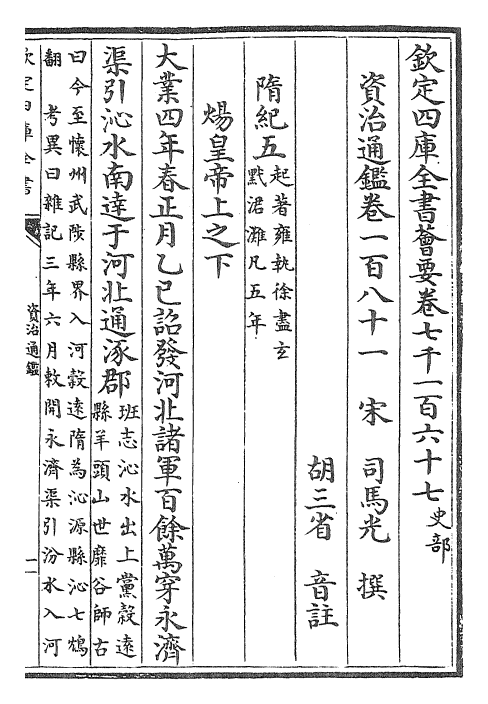 欽定四庫全書薈要卷七千一百六十七 史部
資治通鑑卷一百八十一 宋 司馬光 撰
胡三省 音註
隋紀五 起著雍執徐盡玄
默涒灘凡五年
煬皇帝上之下
大業四年春正月乙巳詔發河北諸軍百餘萬穿永濟
渠引沁水南達于河北通涿郡 班志沁水出上黨穀遠
縣羊頭山世靡谷師古
曰今至懷州武陟縣界入河穀遠隋為沁源縣沁七鴆
翻 考異曰雜記三年六月敕開永濟渠引汾水入河
欽定四庫全書
資治通鑑
一